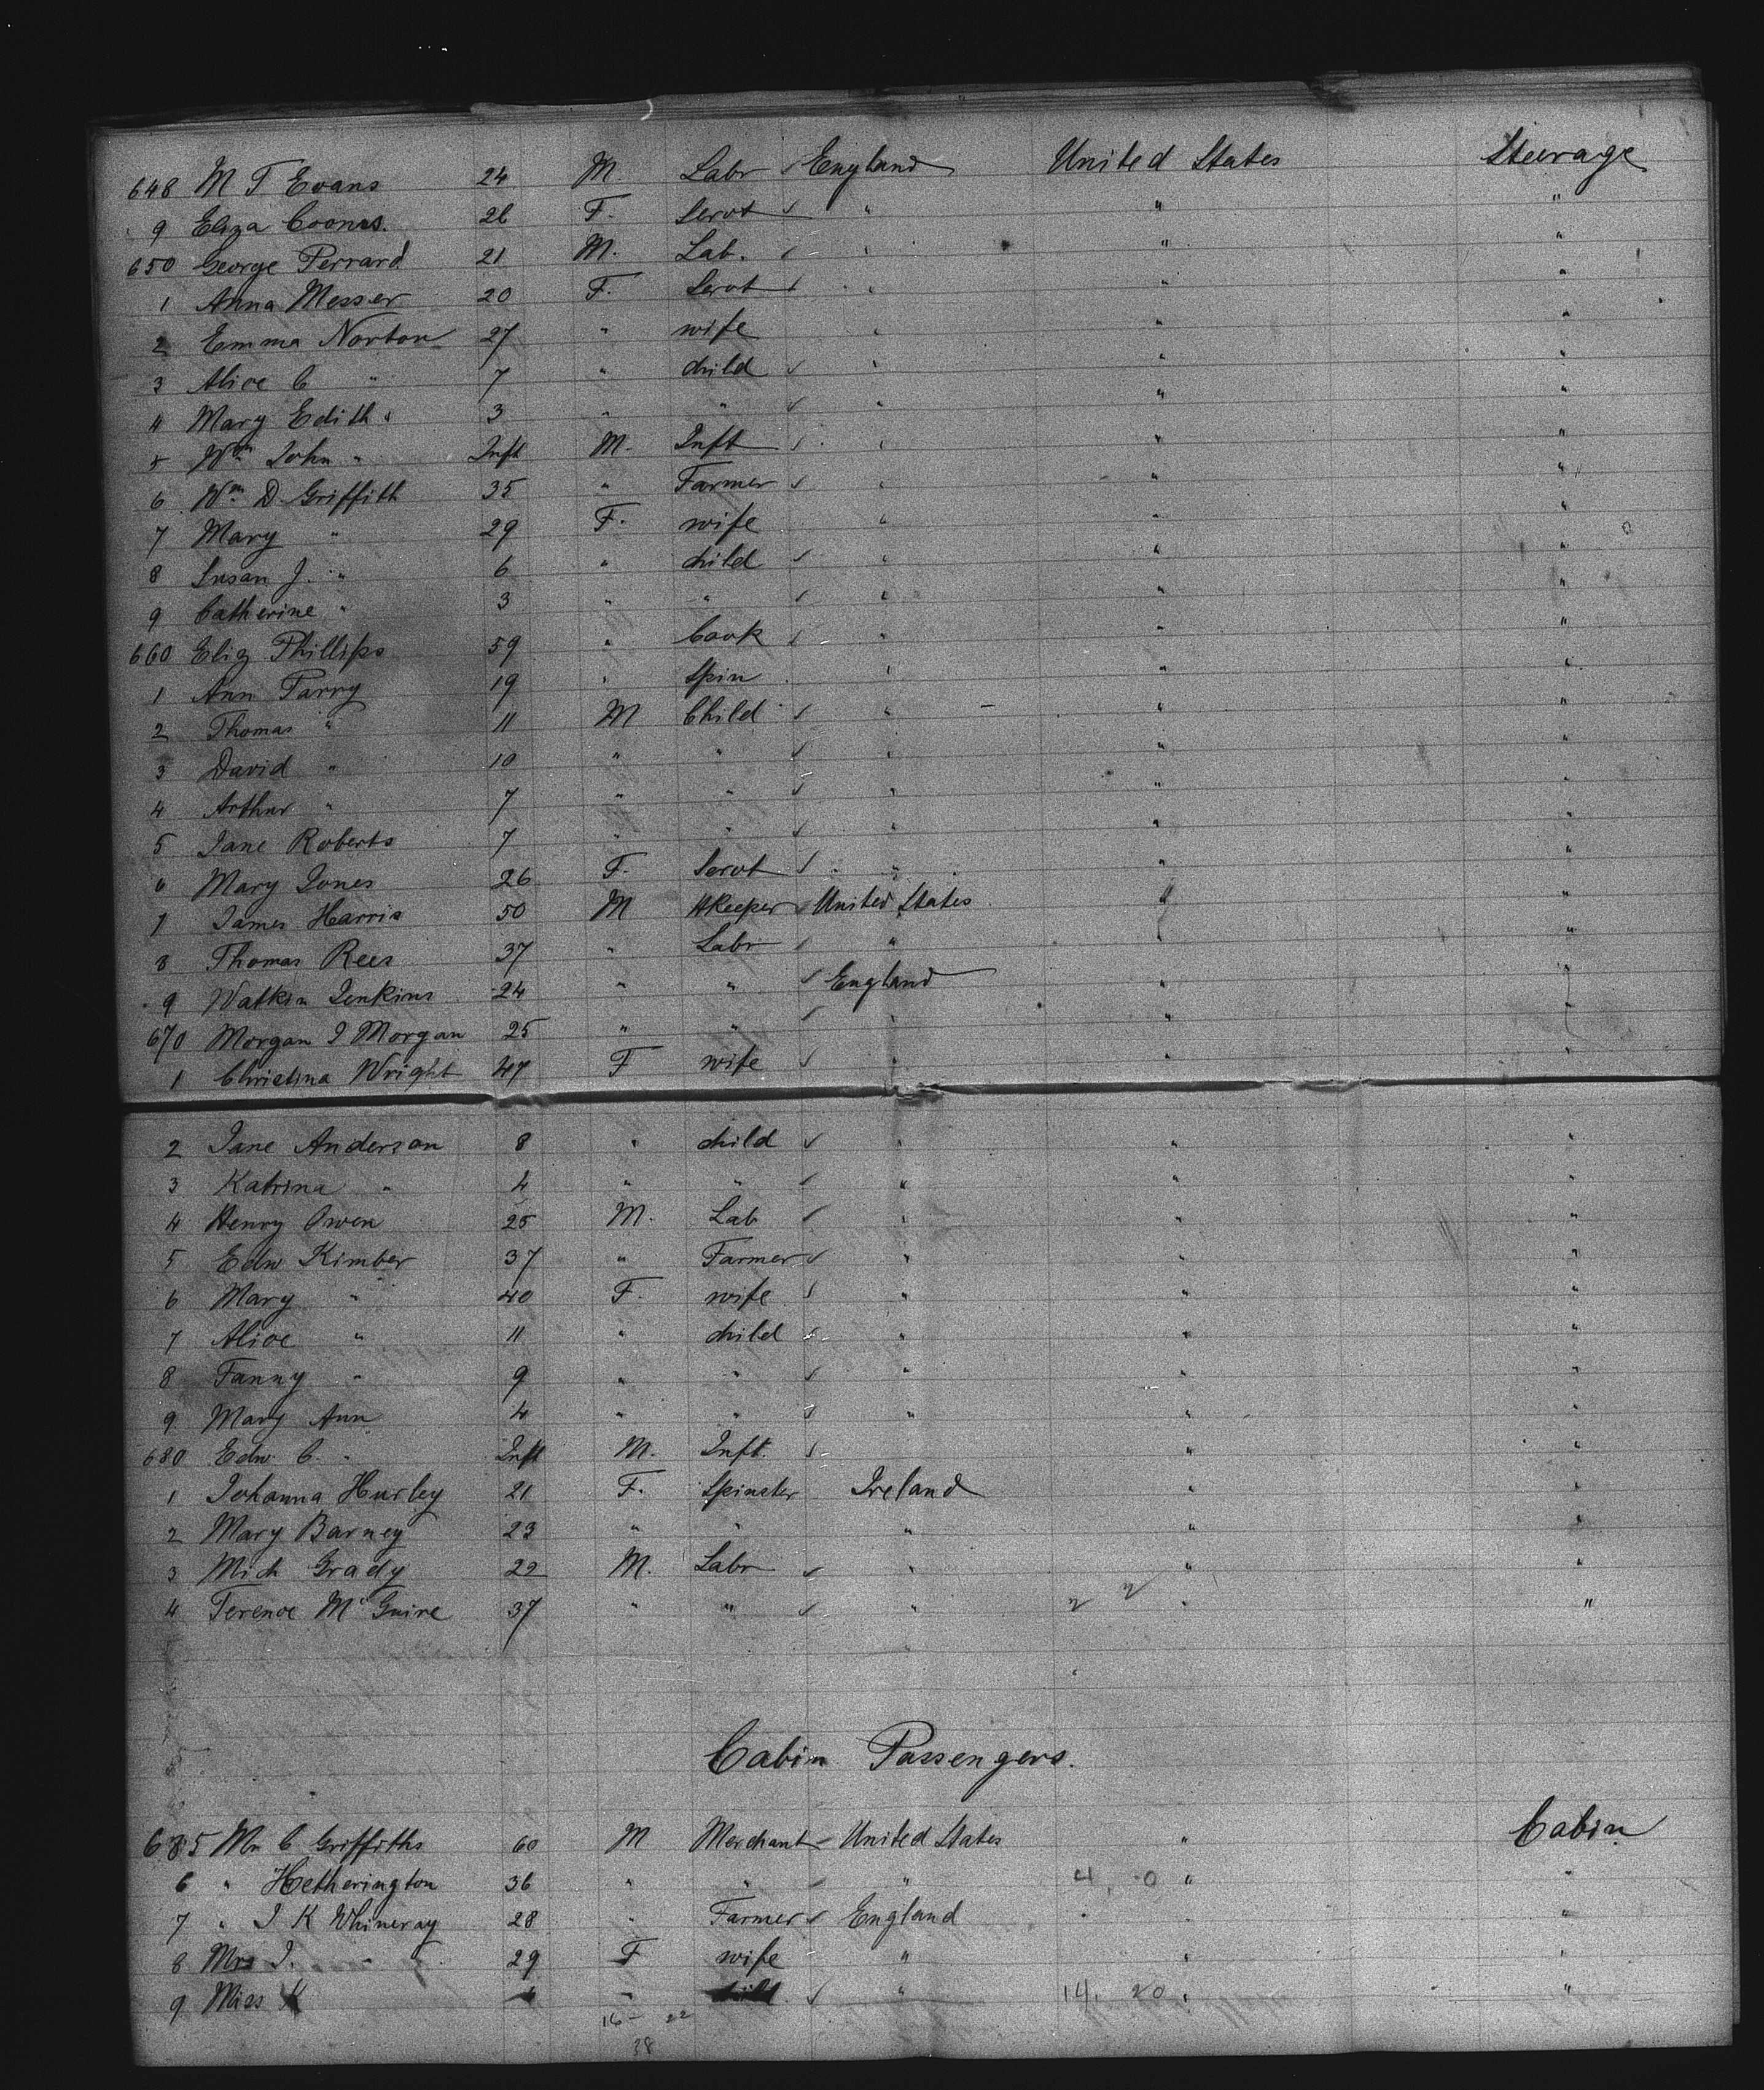 648 M T Evans 24 M. Labr England United States Steerage
9 Eliza Coomes. 26 F. Servt " " "
650 George Perrard 21 M. Lab. " " "
1 Anna Messer 20 F. Servt " " "
2 Emma Norton 27 " wife " " "
3 Alice C " 7 " child " " "
4 Mary Edith " 3 " " " " "
5 Wm John " Inft M. Inft " " "
6 Wm D. Griffith 35 " Farmer " " "
7 Mary " 29 F. wife " " "
8 Susan J. " 6 " child " " "
9 Catherine " 3 " " " " "
660 Eliz Phillips 59 " Cook " " "
1 Ann Parry 19 " Spin " " "
2 Thomas " 11 M Child " " "
3 David " 10 " " " " "
4 Arthur " 7 " " " " "
5 Jane Roberts 7 " " " " "
6 Mary Jones 26 F. Servt " " "
7 James Harris 50 M HKeeper United States " "
8 Thomas Rees 37 " Labr " " "
9 Watkin Jenkins 24 " " England " "
670 Morgan J Morgan 25 " " " " "
1 Christina Wright 47 F wife " " "
2 Jane Anderson 8 " child " " "
3 Katrina " 4 " " " " "
4 Henry Owen 25 M. Lab " " "
5 Edw Kimber 37 " Farmer " " "
6 Mary " 40 F. wife " " "
7 Alice " 11 " child " " "
8 Fanny " 9 " " " " "
9 Mary Ann 4 " " " " "
680 Edw. C. " Inft M. Inft. " "
1 Johanna Hurley 21 F. Spinster Ireland " "
2 Mary Barney 23 " " " " "
3 Mich Grady 22 M. Labr " " "
4 Terence McGuire 37 " " " " "
Cabin Passengers.
685 Mr C Griffiths 60 M Merchant United States " Cabin
6 " Hetherington 36 " " " 4, 0 " "
7 " J K Whineray 28 " Farmer England " "
8 Mrs J. " 29 F wife " " "
9 Miss K " child " 14, 20 " "
16 - 22
38